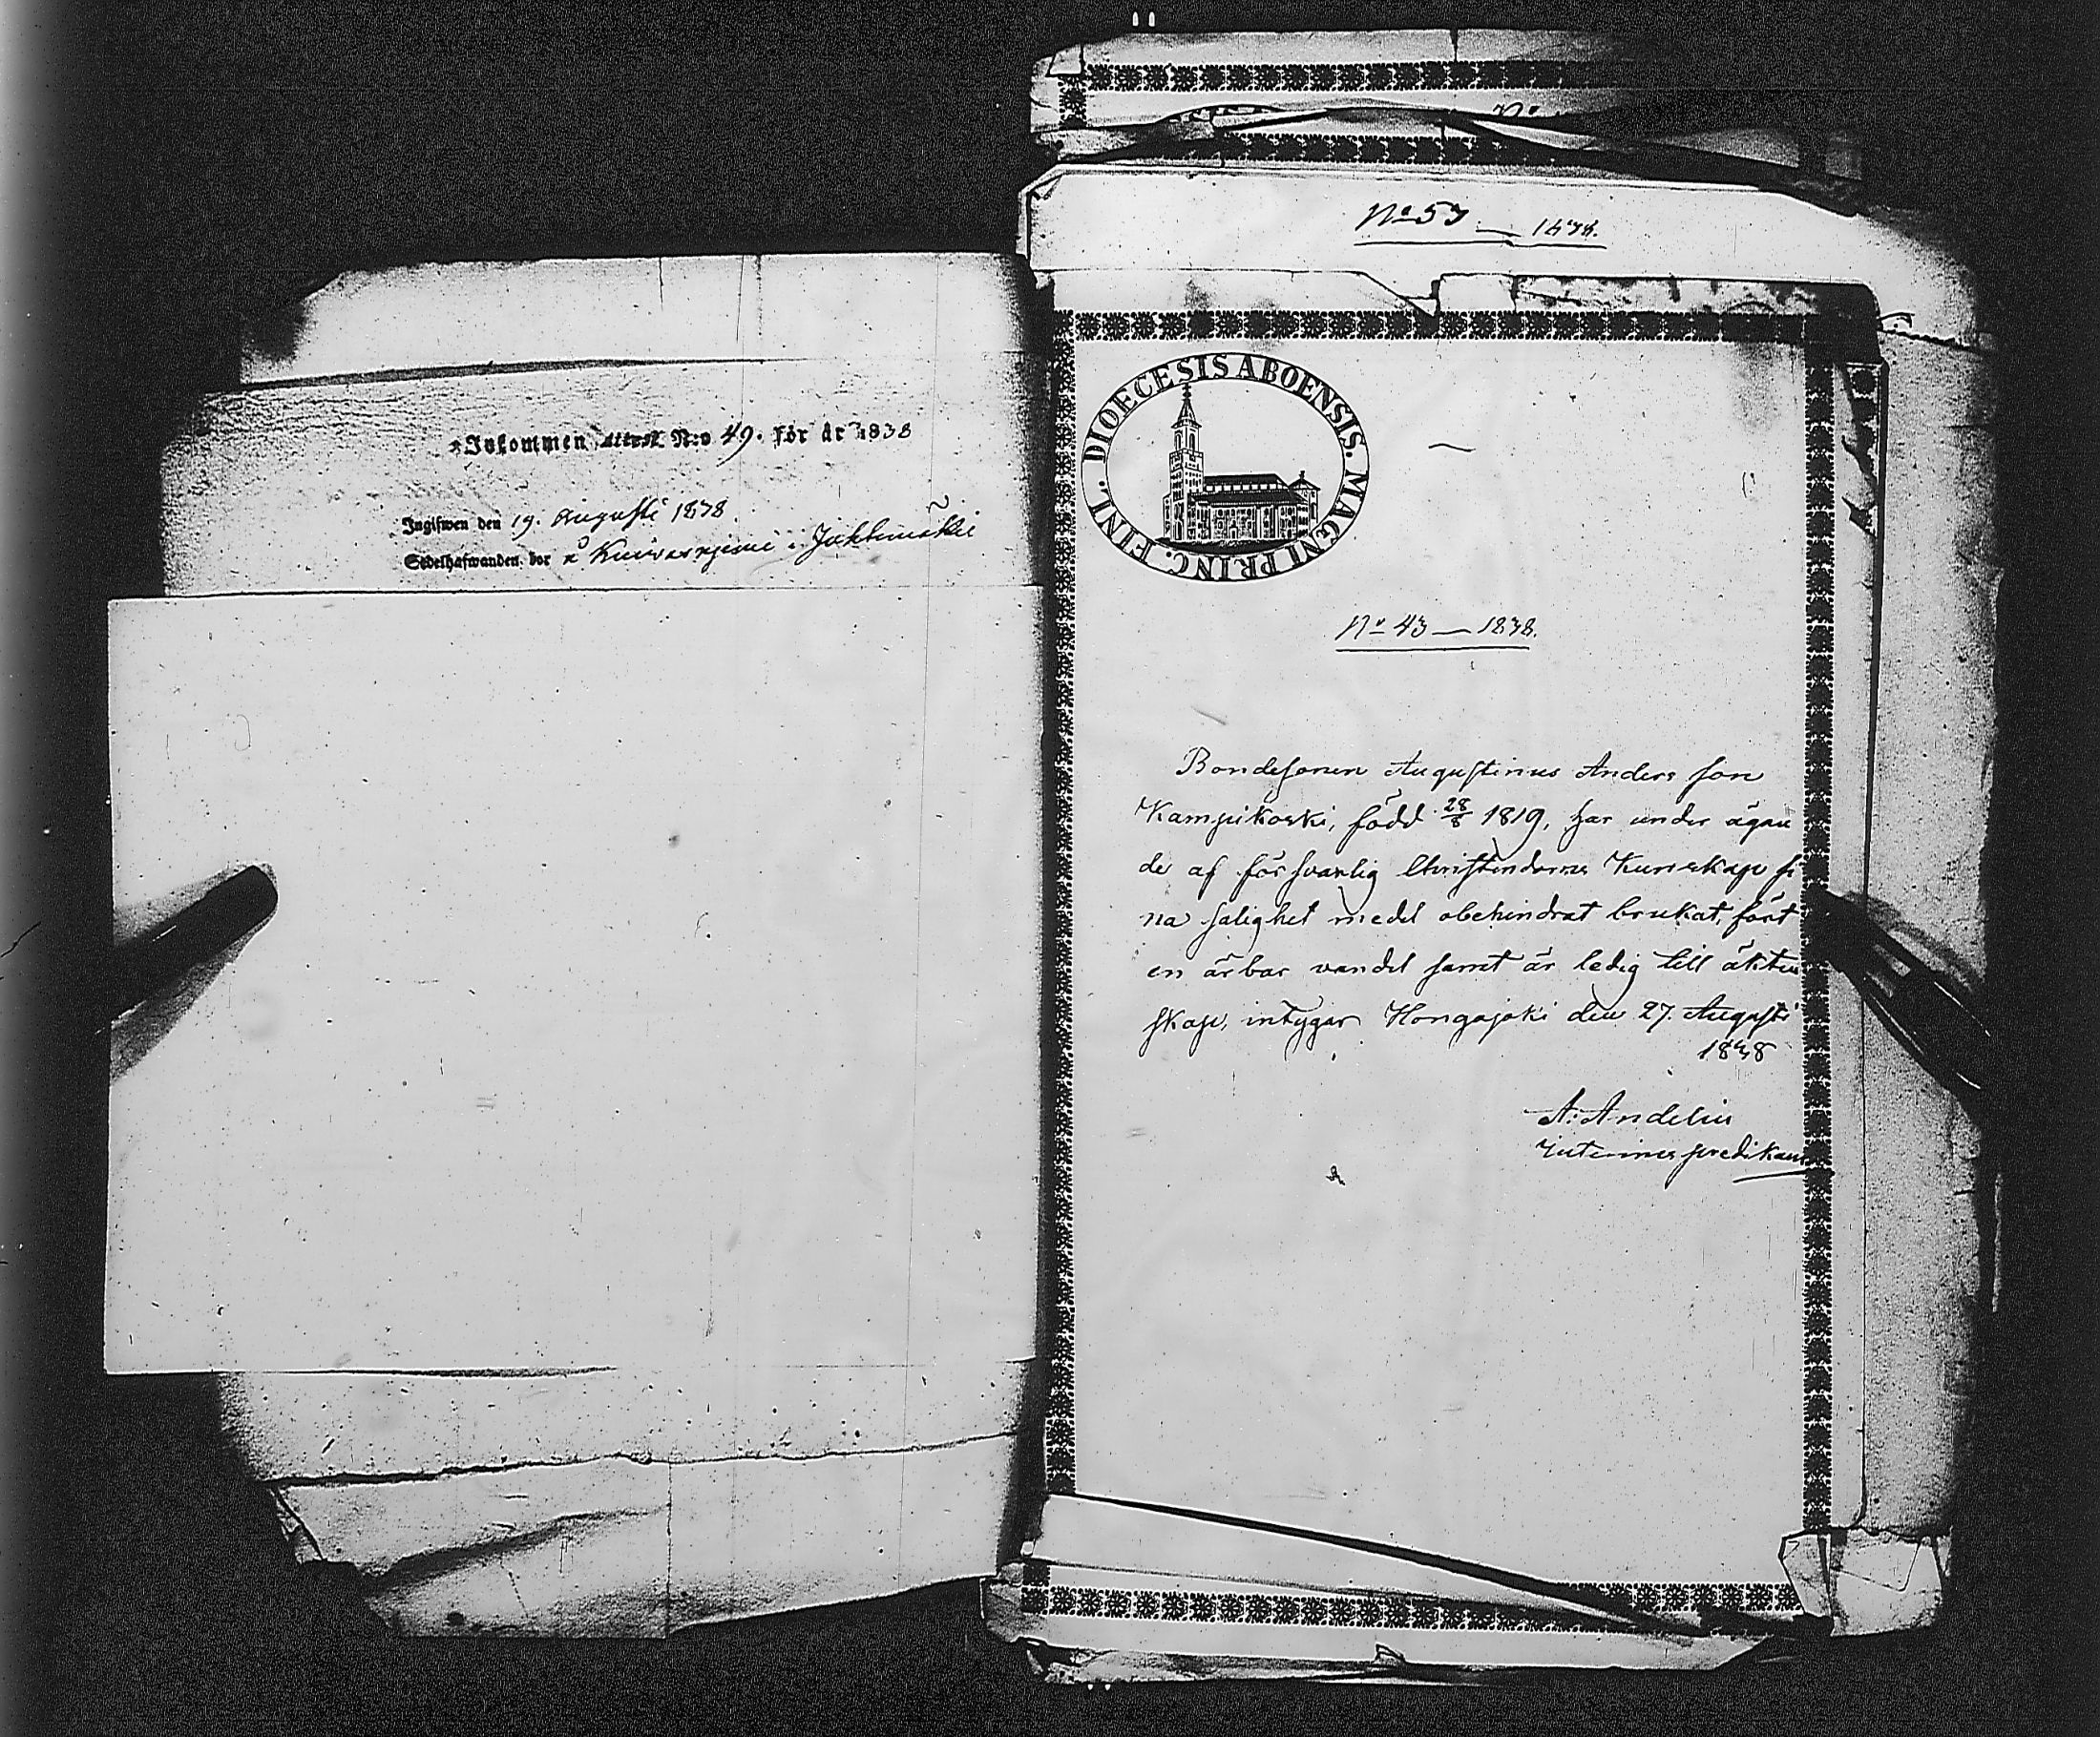 Inkommen attest N:o 49. för år 1838
Ingifwen den 19. Augusti 1838
Sedelhafwanden bor å
No 53 — 1838.
DIOECESIS ABOENSIS. MAGNI PRINC. FINL.
No 43 — 1838.
Bondesonen Augustinus Anders son
Kampikoski, född 28/8 1819, har under ägan
de af försvarlig Christendoms Kunskap si
na salighet medel obehindrat brukat, fört
en ärbar vandel samt är ledig till äkten
skap, intygar Hongojoki den 27. Augusti
1838
A. Andelin
Interims predikant